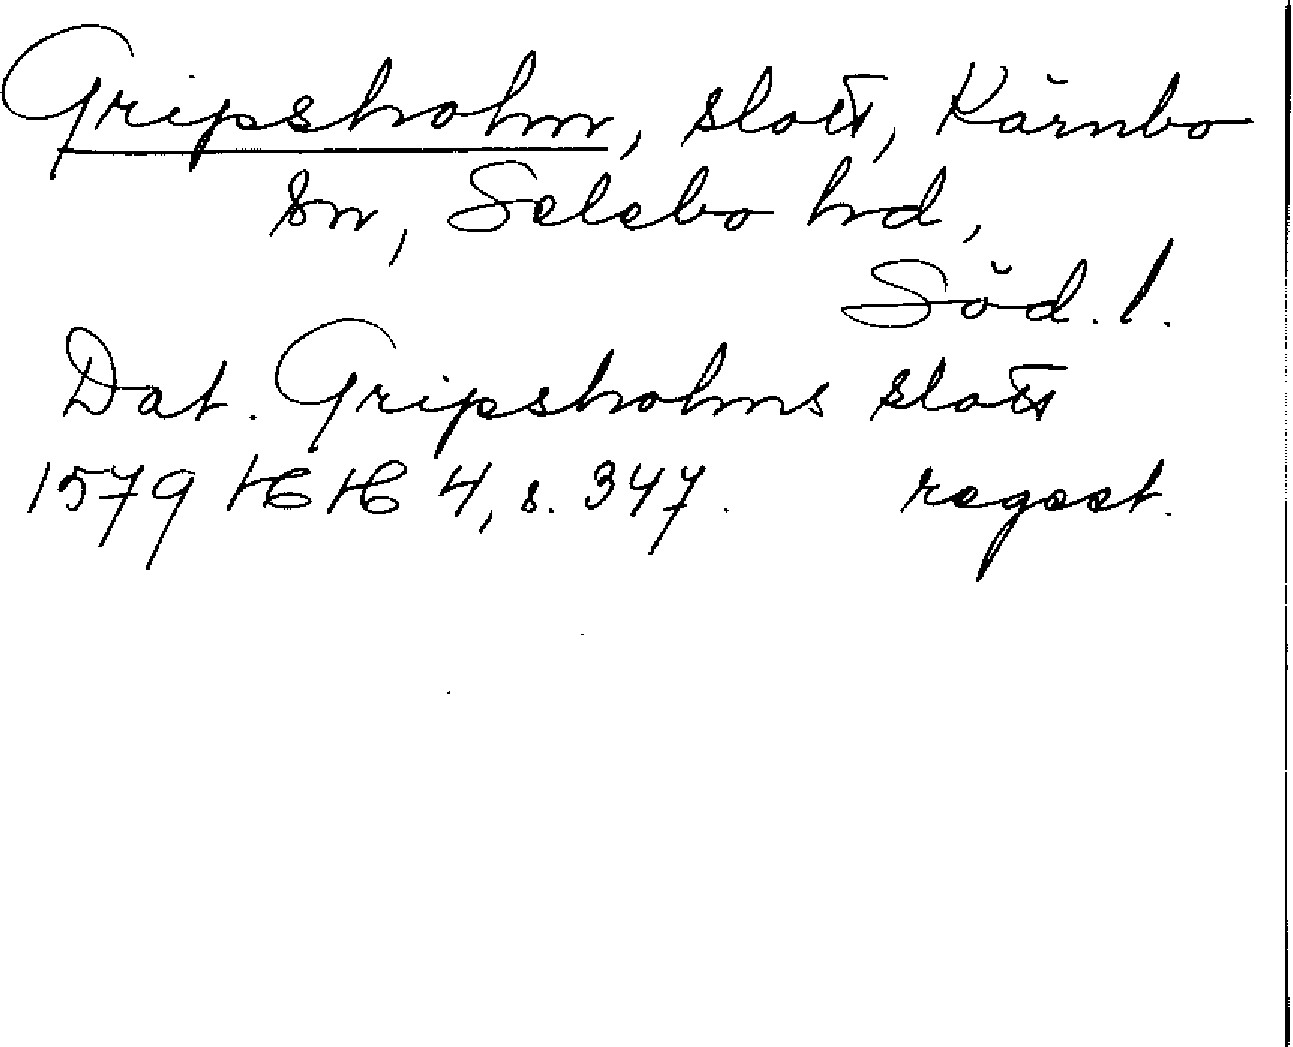 Gripsholm, slott, Kärnbo
sn, Selebo hd,
Söd. l.
Dat. Gripsholms slott
1579 HH 4, s. 347. regest.